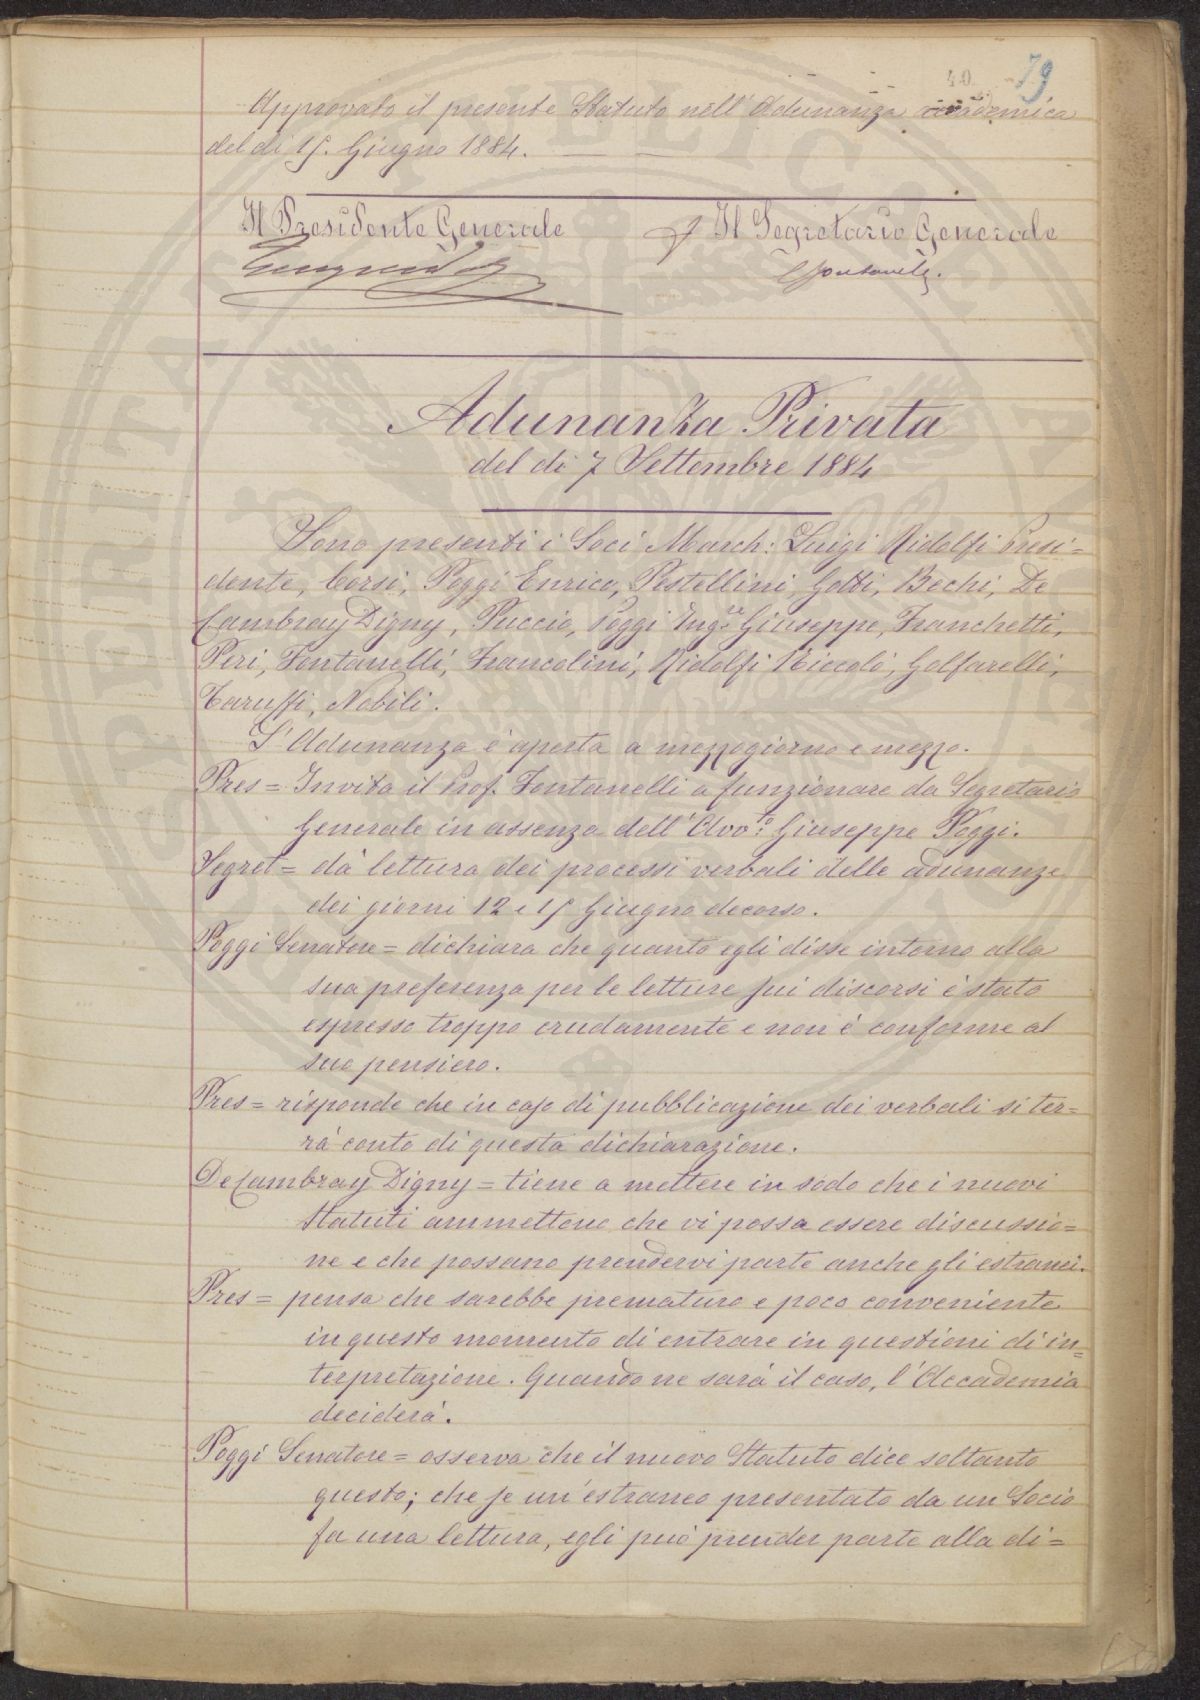 40. 79
Approvato il presente Statuto nell'Adunanza accademica
del dì 15. Giugno 1884.
Il Presidente Generale Il Segretario Generale
Adunanza Privata
del dì 7 Settembre 1884
Sono presenti i Soci March: Luigi Ridolfi Presi=
dente, Corsi, Poggi Enrico, Pestellini, Gotti, Bechi, De
Cambray Digny, Puccio, Poggi Ing.re Giuseppe, Franchetti,
Peri, Fontanelli, Francolini, Ridolfi Niccolò, Golfarelli,
Taruffi, Nobili.
L'Adunanza è aperta a mezzogiorno e mezzo.
Pres = Invita il Prof. Fontanelli a funzionare da Segretario
Generale in assenza dell'Avv.to Giuseppe Poggi.
Segret = dà lettura dei processi verbali delle adunanze
dei giorni 12 e 15 Giugno decorso.
Poggi Senatore = dichiara che quanto egli disse intorno alla
sua preferenza per le letture sui discorsi è stato
espresso troppo crudamente e non è conforme al
suo pensiero.
Pres = risponde che in caso di pubblicazione dei verbali si ter=
rà conto di questa dichiarazione.
De Cambray Digny = tiene a mettere in sodo che i nuovi
Statuti ammettono che vi possa essere discussio=
ne e che possano prendervi parte anche gli estranei.
Pres = pensa che sarebbe prematuro e poco conveniente
in questo momento di entrare in questioni di in=
terpretazione. Quando ne sarà il caso, l'Accademia
deciderà.
Poggi Senatore = osserva che il nuovo Statuto dice soltanto
questo; che se un'estraneo presentato da un Socio
fa una lettura, egli può prender parte alla di=